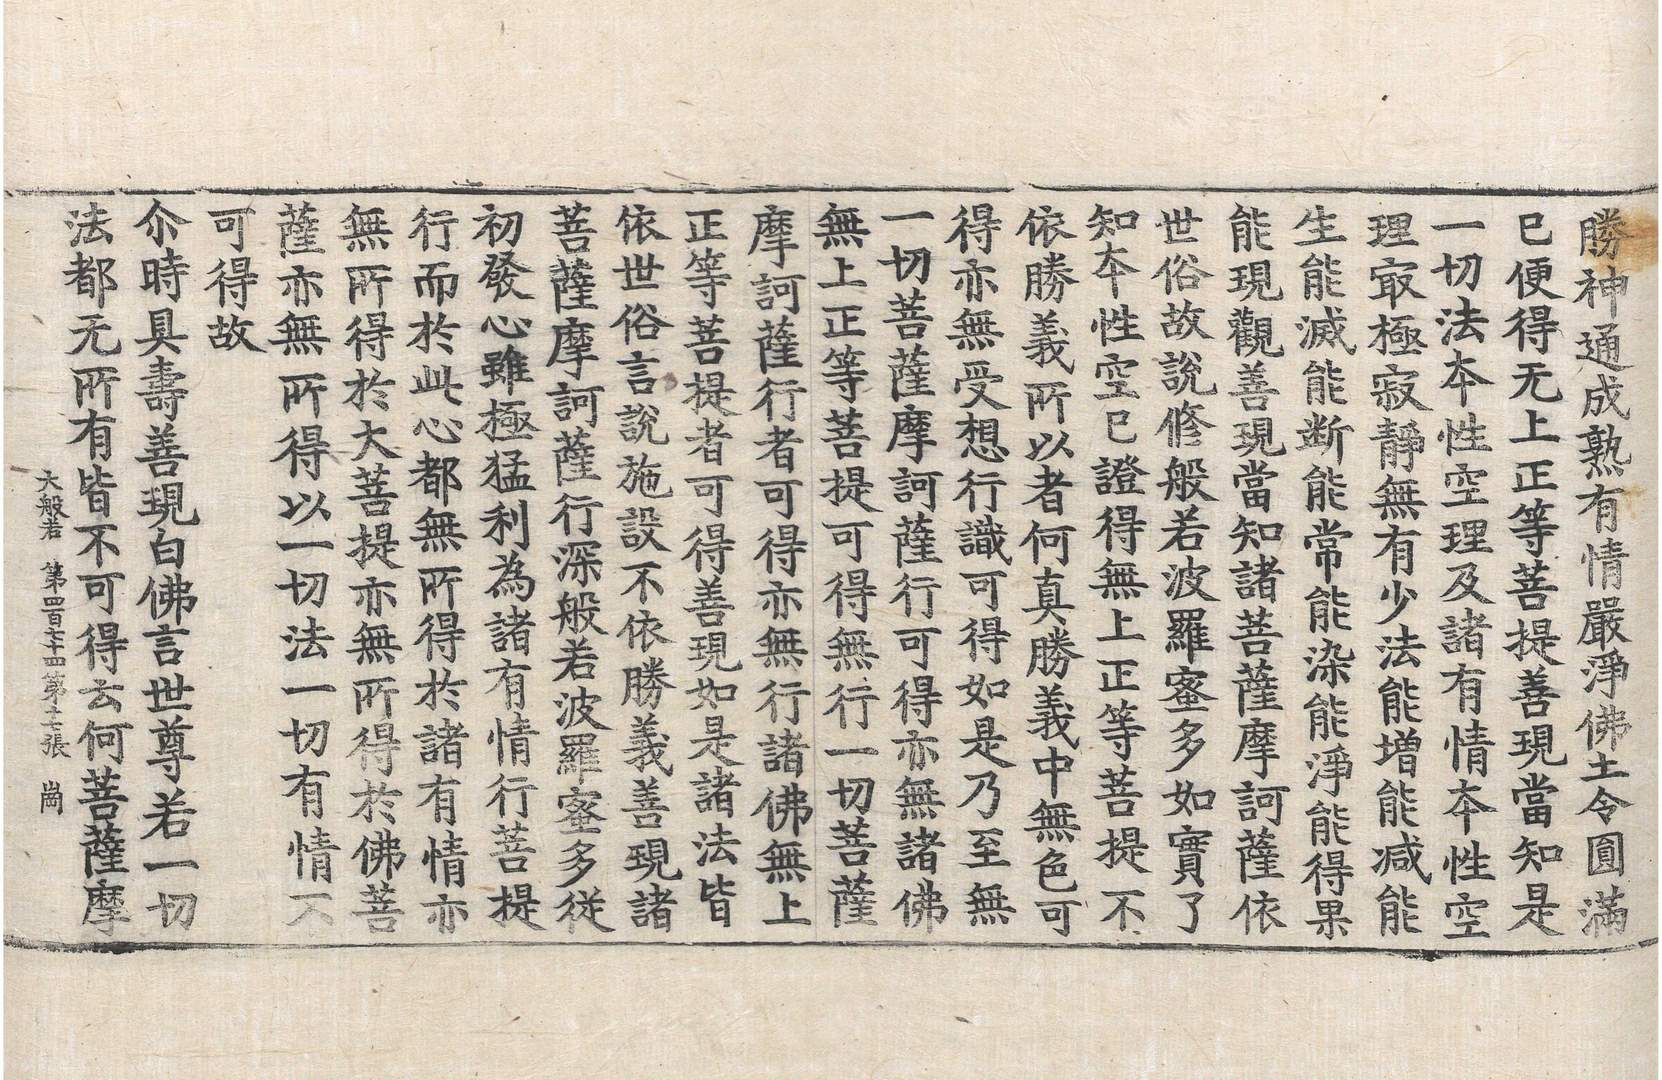 勝神通成熟有情嚴淨佛土令圓滿
已便得无上正等菩提善現當知是
一切法本性空理及諸有情本性空
理㝡極寂靜無有少法能增能減能
生能滅能断能常能染能淨能得果
能現觀善現當知諸菩薩摩訶薩依
世俗故說修般若波羅蜜多如實了
知本性空已證得無上正等菩提不
依勝義所以者何真勝義中無色可
得亦無受想行識可得如是乃至無
一切菩薩摩訶薩行可得亦無諸佛
無上正等菩提可得無行一切菩薩
摩訶薩行者可得亦無行諸佛無上
正等菩提者可得善現如是諸法皆
依世俗言說施設不依勝義善現諸
菩薩摩訶薩行深般若波羅蜜多從
初發心雖極猛利為諸有情行菩提
行而於此心都無所得於諸有情亦
無所得於大菩提亦無所得於佛菩
薩亦無所得以一切法一切有情不
可得故
尒時具壽善現白佛言世尊若一切
法都无所有皆不可得云何菩薩摩
大般若 第四百七十四第十七張 崗